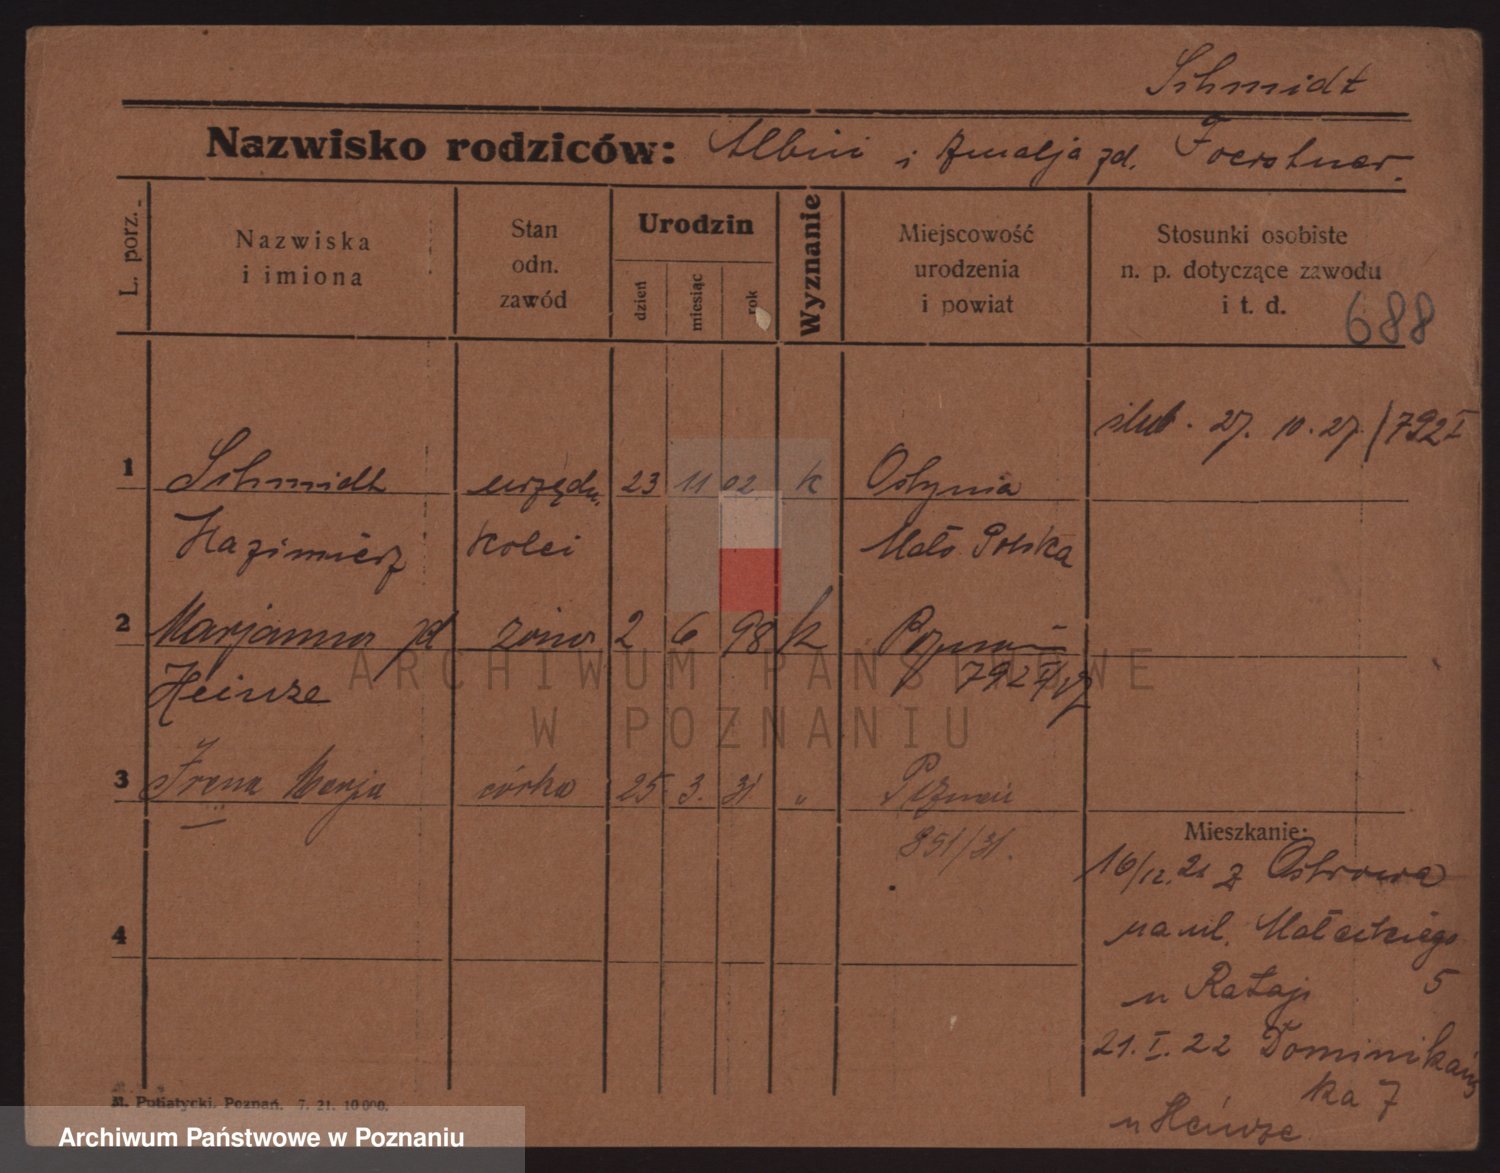 Schmidt
Nazwisko rodziców: Albin i Emalja zd. Foerstner.
L. porz.
Nazwiska
i imiona
Stan
odn.
zawód
Urodzin
dzień
miesiąc
rok
Wyznanie
Miejscowość
urodzenia
i powiat
Stosunki osobiste
n. p. dotyczące zawodu
i t. d.
688
ślub. 27. 10. 27. /792 I
1 Schmidt urzędn. 23 11 02 k Ostynia
Kazimierz kolei Mało Polska
2 Marjanna zd żona 2 6 98 k Poznań
Heinze 792 I/27
3 Irena Marja córka 25 3. 31 " Poznań
851/31.
Mieszkanie:
16/12. 21 z Ostrowa
na ul. Małeckiego
u Rataj 5
4
21. I. 22 Dominikańs
ka 7
u Heinze
M. Putiatycki, Poznań. 7. 21. 10 000.
ARCHIWUM PAŃSTWOWE
W POZNANIU
Archiwum Państwowe w Poznaniu